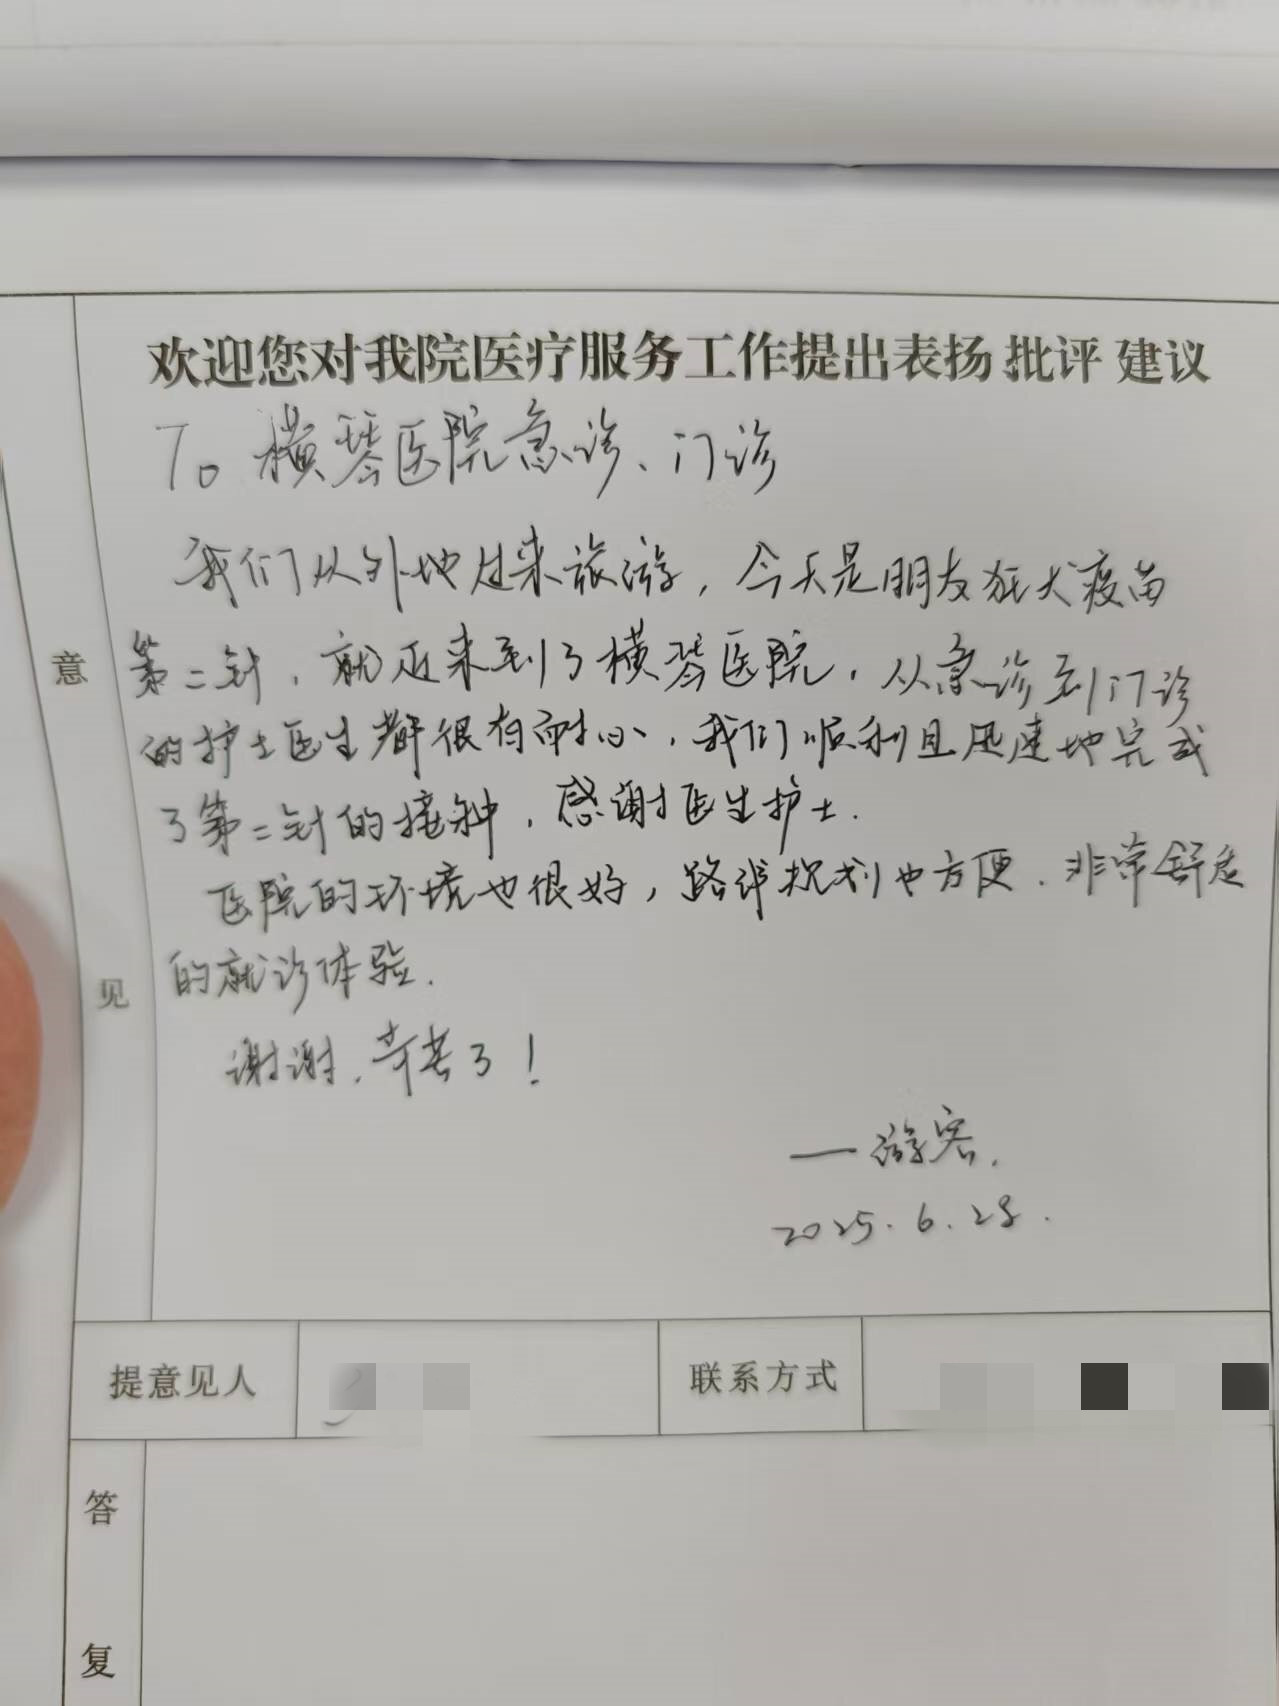 欢迎您对我院医疗服务工作提出表扬 批评 建议
To 横琴医院急诊、门诊
我们从外地过来旅游，今天是朋友狂犬疫苗
第二针，就近来到了横琴医院，从急诊到门诊
的护士医生都很有耐心，我们顺利且迅速地完成
了第二针的接种，感谢医生护士.
医院的环境也很好，路线规划也方便.非常舒适
的就诊体验.
谢谢.辛苦了！
——游客.
2025.6.28.
意见
提意见人
联系方式
答复